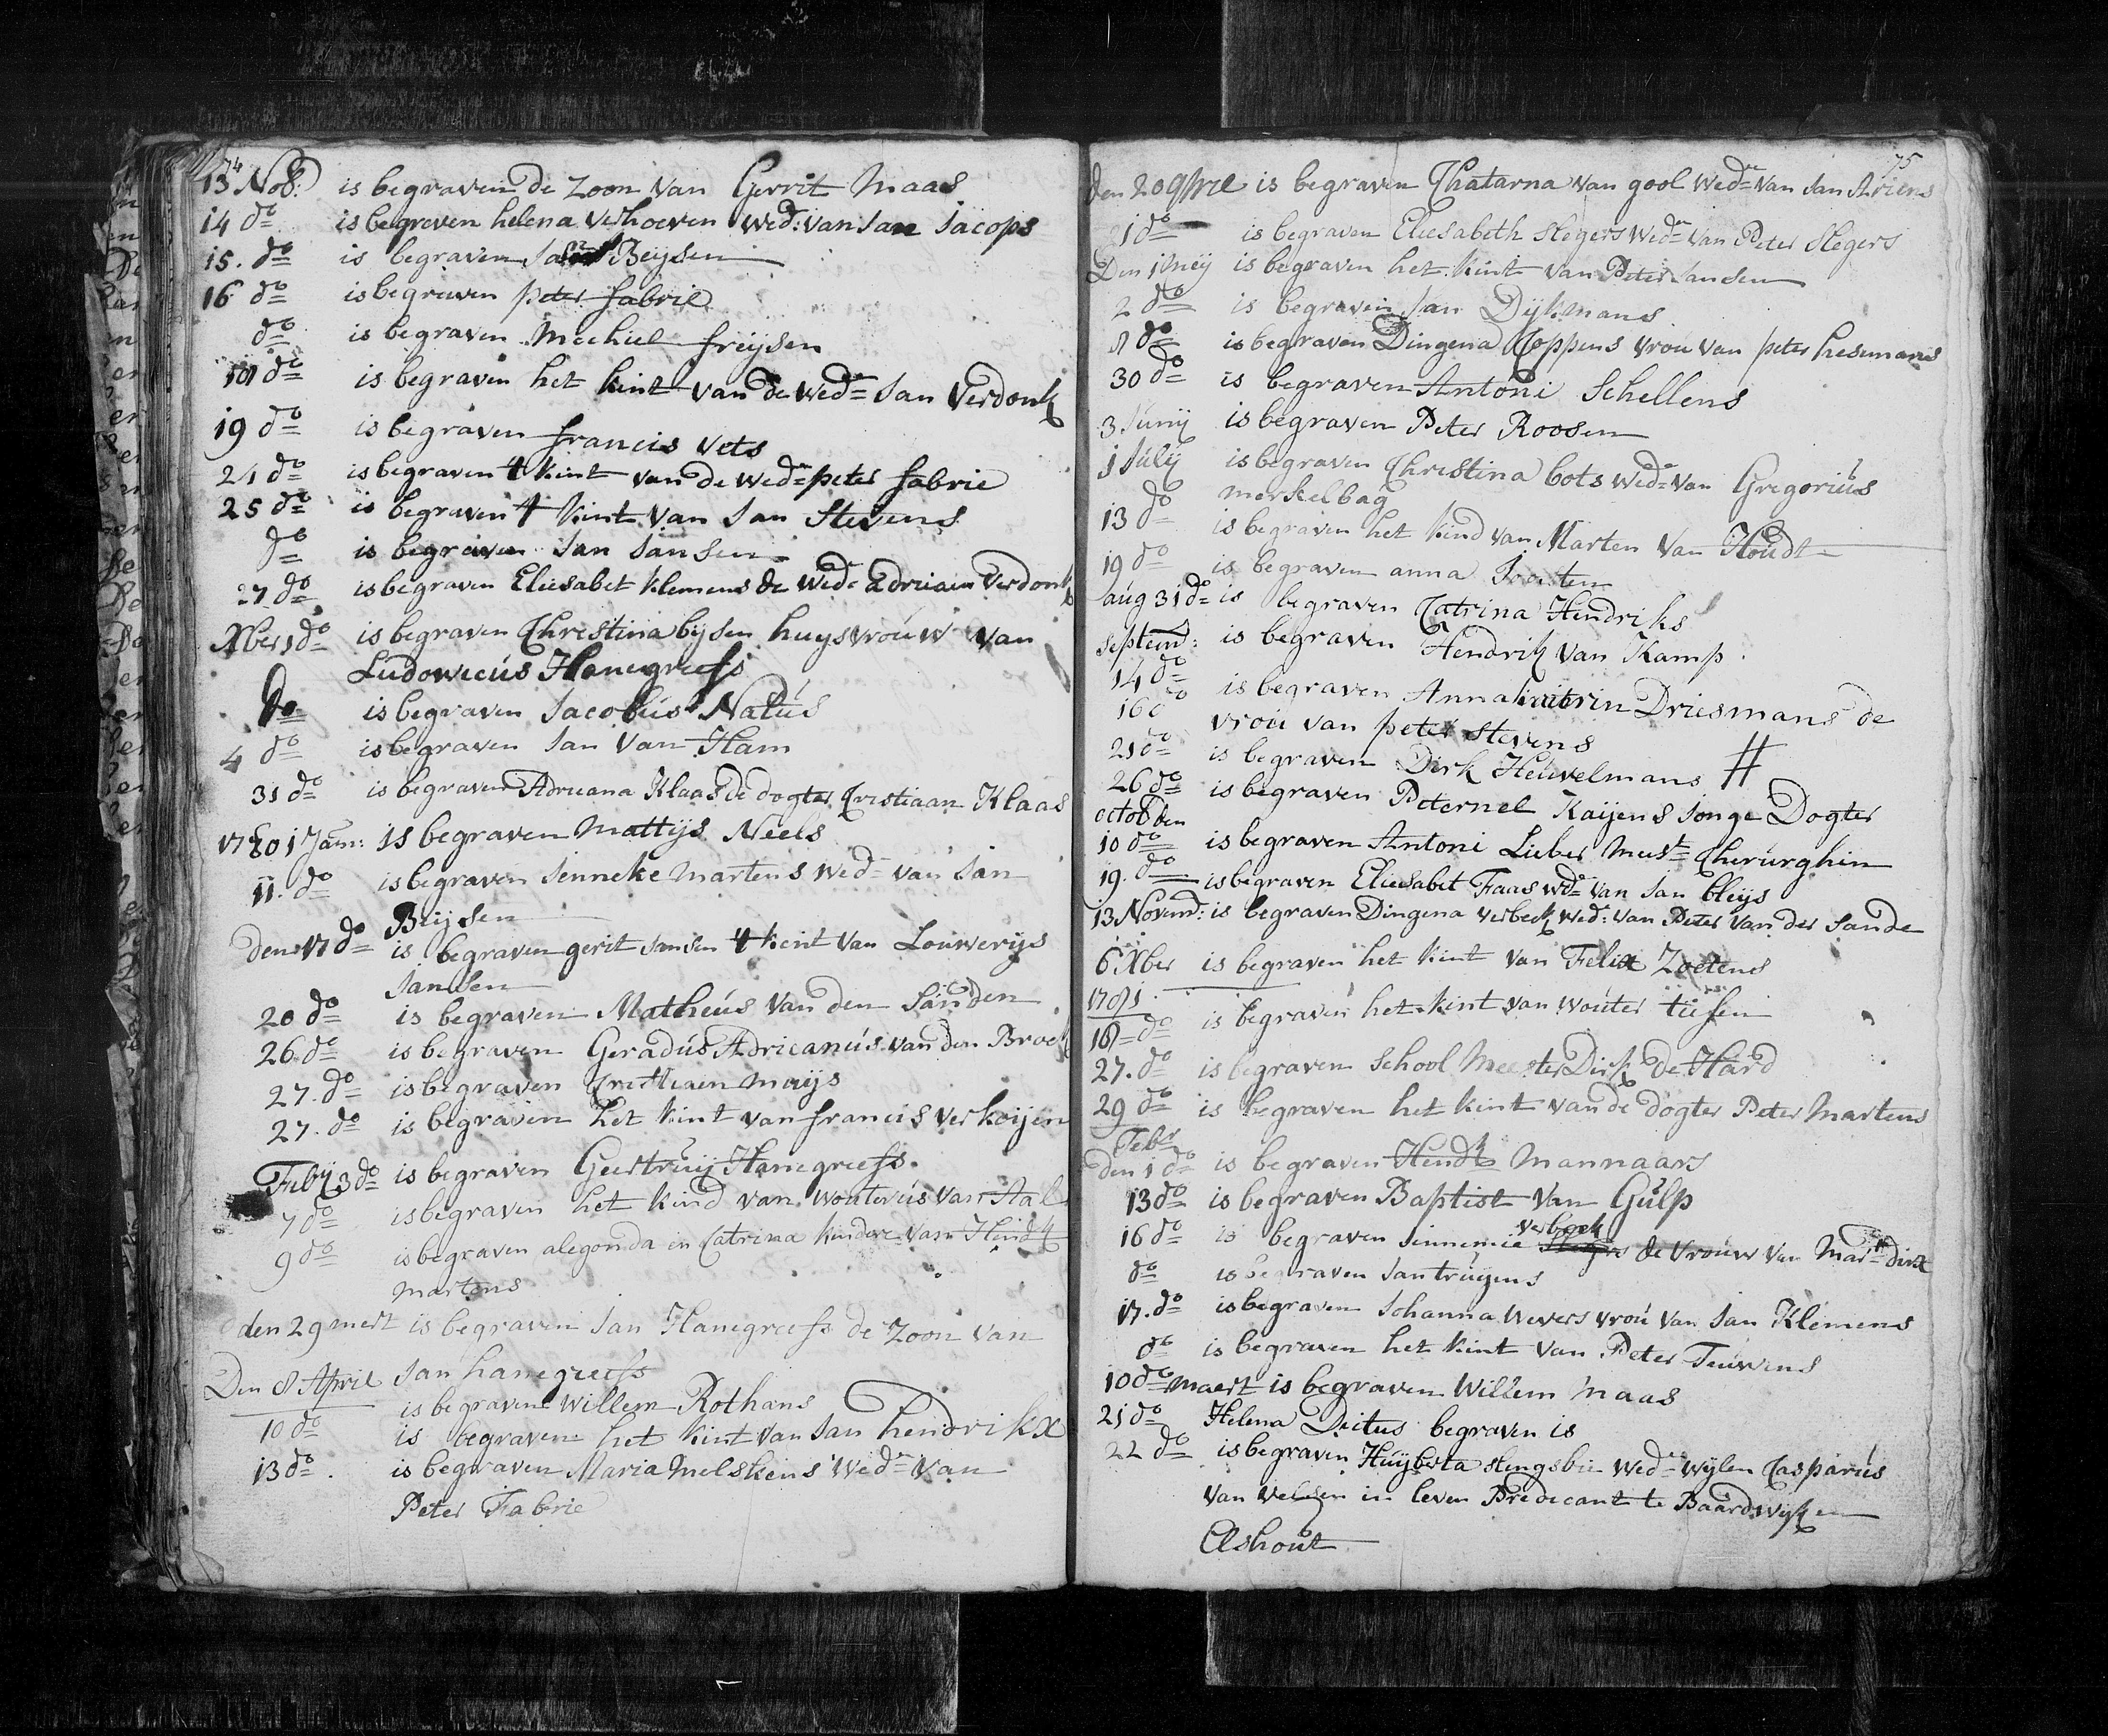 74
13 Nob: is begraven de zoon van Gerrit Maas
14 do is begraven helena verhoeven Wed: van Jan Jacops
15. do is begraven Beijsen
16 do is begraven peter fabrie
do is begraven Mechiel freijsen
do is begraven het kint van de Wede Jan Verdonk
19 do is begraven francis vets
21 do is begraven 't kint van de Wede peter fabrie
25 do is begraven 't kint van Jan Stevens
do is begraven Jan Jansen
27 do is begraven Eliesabet klemens de Wede Adriaen Verdonk
Xber 1 do is begraven Christina bijsen huysvrouw van
Ludowicus Hanegreefs
do is begraven Jacobus Natus
4 do is begraven Jan Van Ham
31 do is begraven Adriana Klaas de dogter Cristiaan Klaas
1780 17 Jan: is begraven Mattijs Neels
11. do is begraven Jenneke Martens Wed van Jan
Beijsen
den 17 do is begraven gerit Jansen 't kint van Louwerijs
Jansen
20 do is begraven Matheus Van den Sanden
26 do is begraven Geradus Adrieanus van den Broek
27. do is begraven Cristiaen Maijs
27. do is begraven het kint van francis verkoijen
Feby 3 do is begraven Geertruij Hanegreefs.
7 do is begraven het kind van Wouterus van Stal
9 do is begraven alegonda en Catrina kindere van Hendk
Martens
den 29 mert is begraven Jan Hanegreefs de Zoon van
Jan hanegreefs
Den 8 April is begraven Willem Rothans
10 do is begraven het kint van Jan hendrikx
13 do. is begraven Maria Melskens Wede van
Peter Fabrie
75
den 20 Aprie is begraven Chatarna van gool Wede van Jan Ariens
21 do is begraven Eliesabeth Slegers Wede van Peter Slegers
Den 1 Meij is begraven het kint van Peter Jansen
2 do is begraven Jan Dijkmans
do is begraven Dingena Coppens vrou van peter hesemans
30 do is begraven Antoni Schellens
3 Junij is begraven Peter Roosen
1 Julij is begraven Christina bots Wede van Gregorius
merkelbag
13 do is begraven het kind van Marten Van Houdt
19 do is begraven anna Joosten
aug 31 do is begraven Catrina Hendriks
Septemb: is begraven Hendrik van Kamp.
14 do
16 do is begraven Anna Driesmans de
vrou van peter Stevens
21 do is begraven Dirk Heuvelmans #
26 do is begraven Peternel Kaijens Jonge Dogter
octob den
10 do is begraven Antoni Lieber Mest Cherurghin
19. do is begraven Eliesabet Faas Wde van Jan bleijs
13 Novemb: is begraven Dingena verbeek Wed: van Peter van der Sande
6 Xber is begraven het kint van Felix Zoetens
1781.
18 do is begraven het kint van Wouter
27. do is begraven School Meester Dirk de Hard
29 do is begraven het kint van de dogter Peter Martens
Feber
den 1 do is begraven Hendk Mannaars
13 do is begraven Baptist van Gulp
16 do is begraven Jennemie verbeek de Vrouw van Marn dirx
do is begraven Jan truijens
17. do is begraven Johanna Wevers vrou van Jan Klemens
do is begraven het kint van Peter Teuwens
10 do maert is begraven Willem Maas
21 do Helena Dritus begraven is
22 do is begraven Huijberta Slengsbie Wede Wylen Casparus
van Velsen in leven Predecant te Baardwijk en
Elshout